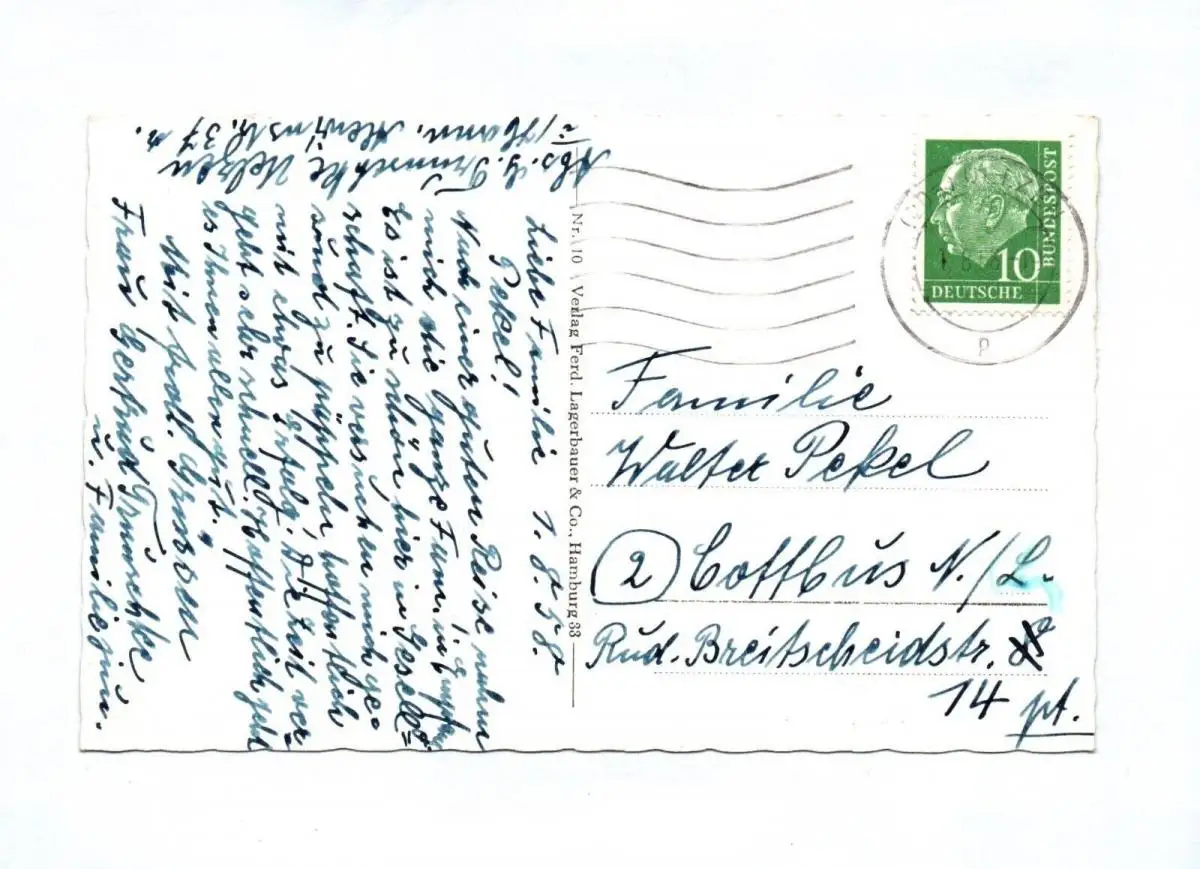 Abs. G. Trunschke Uelzen
Hann.
Str. 37
Liebe Familie 1.8.58.
Pekel!
Nach einer guten Reise nahm
mich die ganze Fam. in
Es ist zu schön hier in Gesell=
schaft. Sie versuchen mich ge=
sund zu päppeln, hoffentlich
mit etwas Erfolg. Die Zeit ver=
geht sehr schnell. Hoffentlich geht
es Ihnen allen gut.
Mit frdl. Grüssen
Frau Gertrud Trunschke
u. Familie
Nr. 10 Verlag Ferd. Lagerbauer & Co., Hamburg 33
DEUTSCHE
BUNDESPOST
10
p
Familie
Walter Pekel
(2) Cottbus N./L.
Rud. Breitscheidstr.
14 pt.